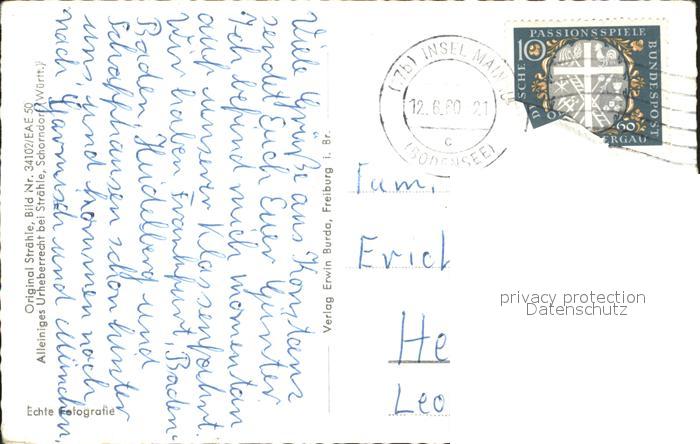 Viele Grüße aus Konstanz
sendet Euch Euer Günter
Ich befind mich momentan
auf unserer Klassenfahrt.
Wir haben Frankfurt, Baden-
Baden, Heidelberg und
Schaffhausen schon hinter
uns, und kommen noch
nach Garmisch und München.
Original Strähle, Bild Nr. 34102/EAE 50
Alleiniges Urheberrecht bei Strähle, Schorndorf (Württ.)
Echte Fotografie
Verlag Erwin Burda, Freiburg i. Br.
(17b) INSEL MAINAU
12.6.60 21
c
(BODENSEE)
PASSIONSSPIELE
10
DEUTSCHE BUNDESPOST
60
Fam.
Erich
He
Leo
privacy protection
Datenschutz